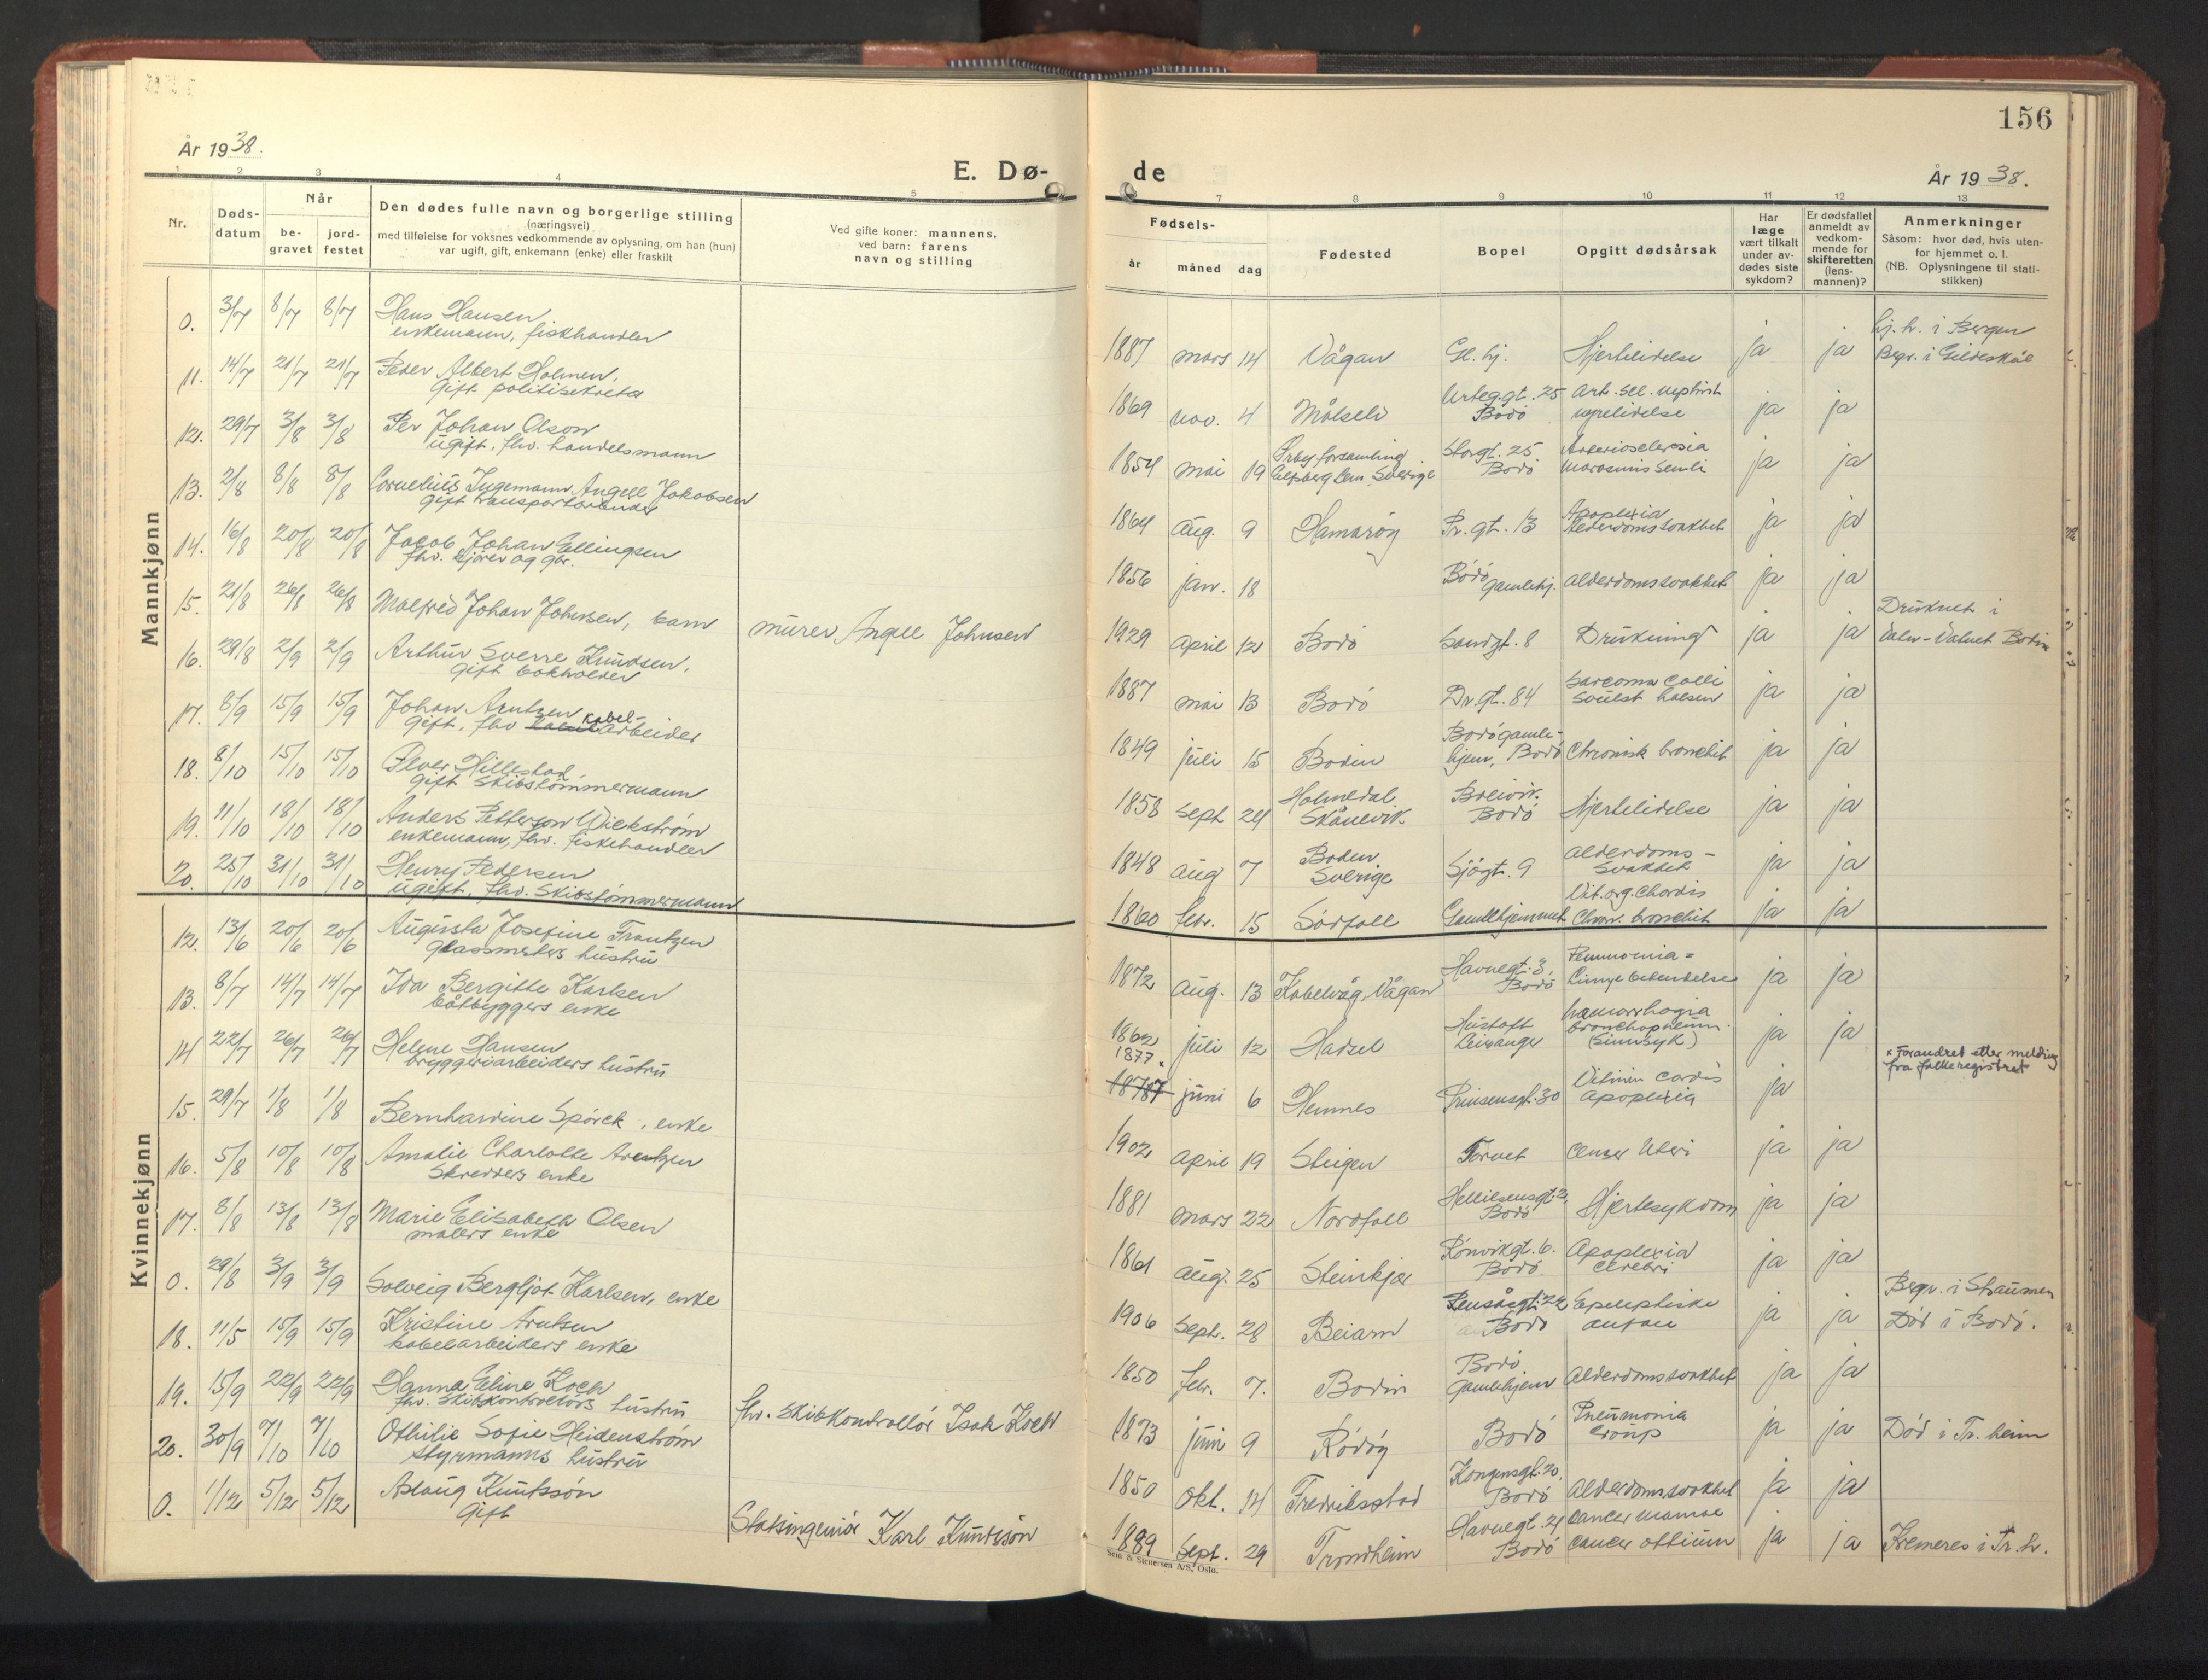 156
År 1938.
E. Dø-
de
År 1938.
1 2 3 4 5
7 8 9 10 11 12 13
Nr.
Døds-
datum
Når
be-
gravet
jord-
festet
Den dødes fulle navn og borgerlige stilling
(næringsvei)
med tilføielse for voksnes vedkommende av oplysning, om han (hun)
var ugift, gift, enkemann (enke) eller fraskilt
Ved gifte koner: mannens,
ved barn: farens
navn og stilling
Fødsels-
år
måned
dag
Fødested
Bopel
Opgitt dødsårsak
Har
læge
vært tilkalt
under av-
dødes siste
sykdom?
Er dødsfallet
anmeldt av
vedkom-
mende for
skifteretten
(lens-
mannen)?
Anmerkninger
Såsom: hvor død, hvis uten-
for hjemmet o. l.
(NB. Oplysningene til stati-
stikken)
Mannkjønn
0. 3/7 8/7 8/7 Hans Hansen
enkemann, fiskhandler
11. 14/7 21/7 21/7 Peder Albert Holmen,
Gift politisekretær
12. 29/7 3/8 3/8 Per Johan Olson
ugift, fhv. handelsmann
13. 2/8 8/8 8/8 Cornelius Ingemann Angell Jakobsen
gift
14. 16/8 20/8 20/8 Jacob Johan Ellingsen
fhv. og gbr.
15. 21/8 26/8 26/8 Malfred Johan Johnsen, barn
murer Angell Johnsen
16. 29/8 2/9 2/9 Arthur Sverre Knudsen,
gift bokholder
17. 8/9 15/9 15/9 Johan Arntzen
gift, fhv kabel-
arbeider
18. 8/10 15/10 15/10 Peder Hillestad,
gift Skibstømmermann
19. 11/10 18/10 18/10 Anders Petterson Wickstrøm
enkemann, fhv. fiskehandler
20. 25/10 31/10 31/10 Henry Pedersen
ugift, fhv. Skibstømmermann
Kvinnekjønn
12. 13/6 20/6 20/6 Augusta Josefine Frantzen
glassmesters hustru
13. 8/7 14/7 14/7 Ida Bergitte Karlsen
båtbyggers enke
14 22/7 26/7 26/7 Helene Hansen
bryggeriarbeiders hustru
15. 29/7 1/8 1/8 Bernhardine Spørck, enke
16. 5/8 10/8 10/8 Amalie Charlotte Arentzen
Skredders enke
17. 8/8 13/8 13/8 Marie Elisabeth Olsen
malers enke
0. 29/8 3/9 3/9 Solveig Bergljot Karlsen, enke
18. 11/5 15/9 15/9 Kristine Arntsen
kabelarbeiders enke
19. 15/9 22/9 22/9 Hanna Eline Koch
fhv. Skibskontrollørs hustru
fhv. Skibskontrollør Isak Koch
20. 30/9 7/10 7/10 Othilie Sofie Heidenstrøm
styrmanns hustru
0. 1/12 5/12 5/12 Aslaug Knutssøn
gift
Statsingeniør Karl Knutssøn
hj. h. i Bergen
1887 mars 14 Vågan Gl. hj. Hjertelidelse ja ja Begr. i Gildeskål
1869 nov. 4 Målselv Bodø nyrelidelse ja ja
1854 mai 19 Elfsborg len, Sverige Storgt. 25 Bodø Arteriosclerosia
ja ja
1864 aug. 9 Hamarøy Pr. gt. 13 Apoplexia
Alderdomssvakhet ja ja
1856 jan. 18 Bodø
gamlehj. Alderdomssvakhet ja ja
1929 april 12 Bodø Sandgt. 8 Drukning ja ja Druknet i
Bodin
1887 mai 13 Bodø Dr. gt. 84 Sarcoma Colli
Svulst halsen ja ja
1849 juli 15 Bodin Bodø gamle-
hjem, Bodø Chronisk bronchit ja ja
1853 sept 24 Holmedal
Skånevik Breivik.
Bodø Hjertelidelse ja ja
1848 aug 7 Boden
Sverige Sjøgt. 9 Alderdoms-
svakhet ja ja
1860 febr. 15 Sørfoll Gamlehjemmet Vit. org. Chordis
Chron. bronchit ja ja
1872 aug. 13 Kabelvåg, Vågan Havnegt. 3,
Bodø Pneumonia =
Lungebetendelse ja ja
1862 juli 12 Hadsel Hustoft
Leivanger hæmorrhagia
bronchopneum.
(Sinnsyk) ja ja
1877 x
1878 juni 6 Hemnes Prinsensgt. 30 Vitium Cordis
Apoplexia ja
x Forandret etter melding
fra folkeregistret
1902 april 19 Steigen Torvet Cancer Uteri ja ja
1881 mars 22 Nordfoll Hellilsensgt. 2,
Bodø Hjertesykdom ja ja
1861 aug. 25 Steinkjer Rønvikgt. 6.
Bodø. Apoplexia
Cerebri ja ja
1906 Sept. 28 Beiarn Rensåsgt. 22
Bodø Epileptiske
anfall ja ja Begr. i Straumen
Død i Bodø.
1850 febr. 7. Bodin Bodø.
Gamlehjem Alderdomssvakhet ja ja
1873 juni 9 Rødøy Bodø Pneumonia
croup ja ja Død i Tr. heim
1850 okt. 14 Fredrikstad Kongensgt. 20.
Bodø Alderdomssvakhet ja ja
1889 Sept. 29 Trondheim Havnegt. 21
Bodø Cancer mamae
ja ja Kremeres i Tr. h.
Sem & Stenersen A/S, Oslo.